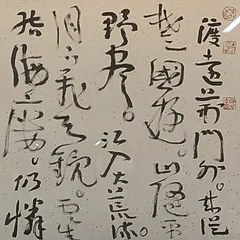 渡遠荊門外。來從
楚國遊。山隨平
野盡。江入大荒流。
月下飛天鏡。雲生
結海樓。仍憐